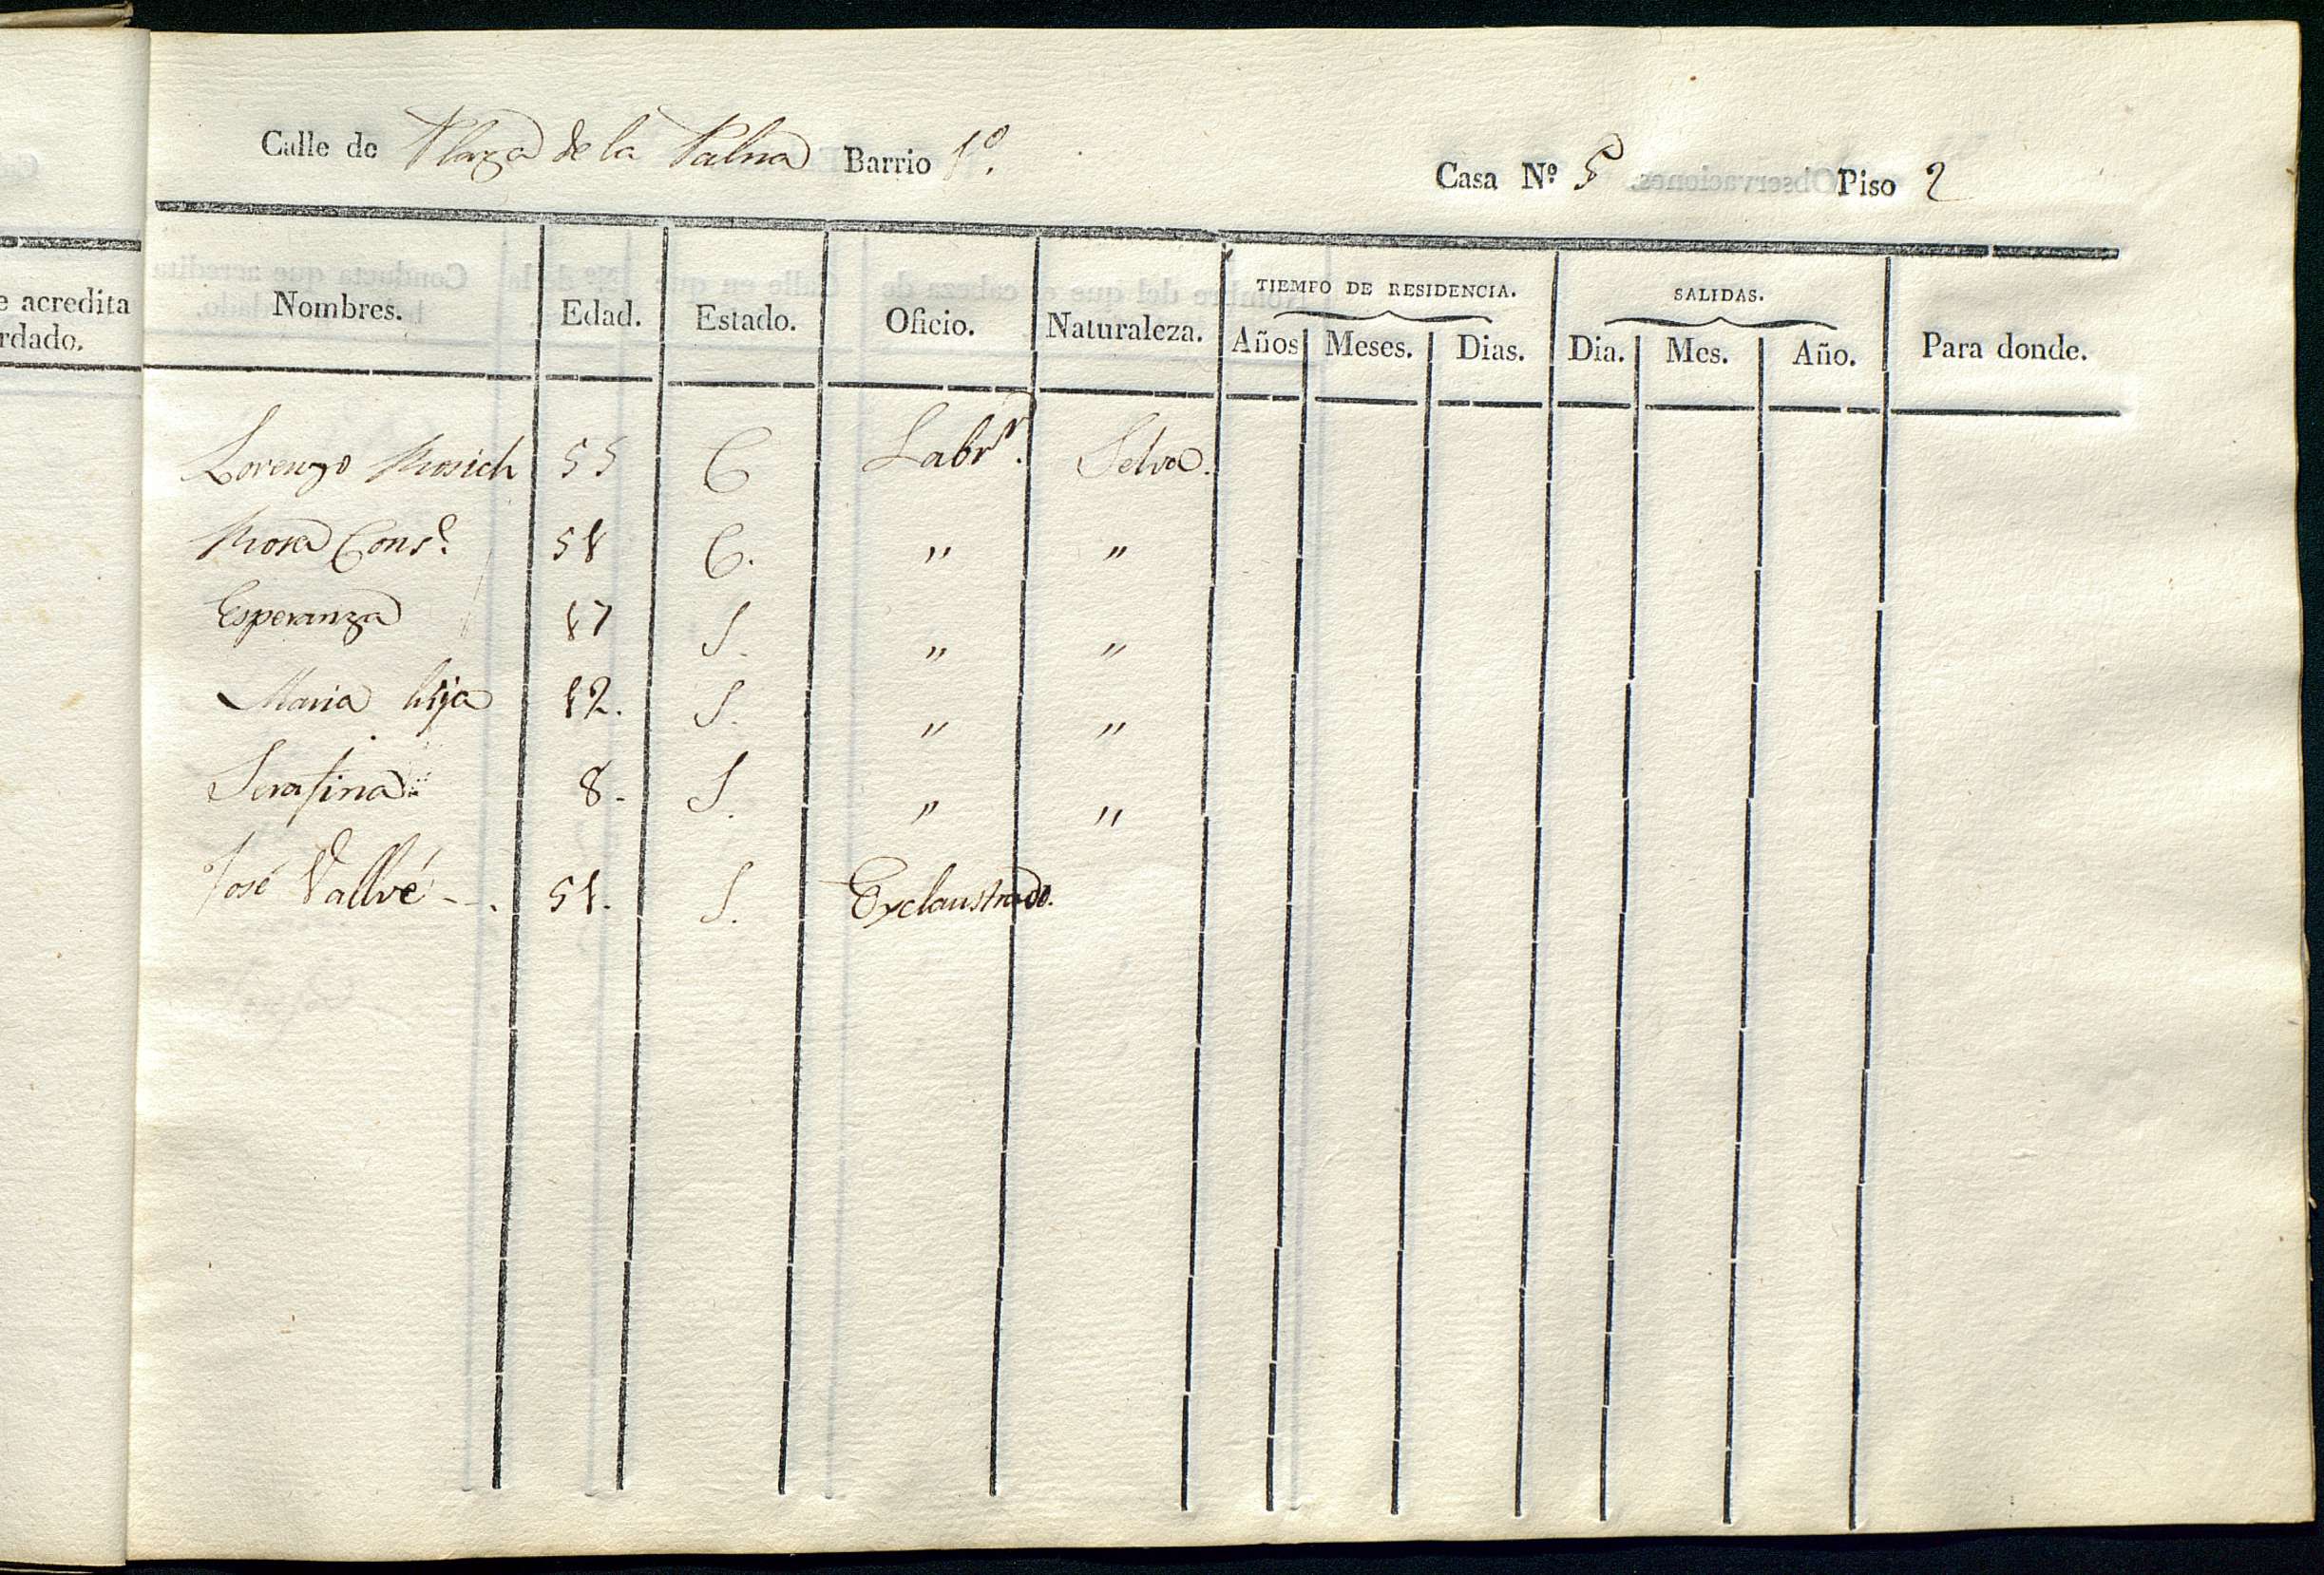 Calle de Plaza de la Palma Barrio 1º.
Casa Nº 5 Piso 2
e acredita
rdado.
Nombres. Edad. Estado. Oficio. Naturaleza. TIEMPO DE RESIDENCIA. SALIDAS. Para donde.
Años Meses. Dias. Dia. Mes. Año.
Lorenzo Rosich 55 C Labrr. Selva.
Rosa Cons.e 51 C. " "
Esperanza 17 S. " "
Maria hija 12. S. " "
Serafina 8. S. " "
José Vallvé 51. S. Exclaustrado.